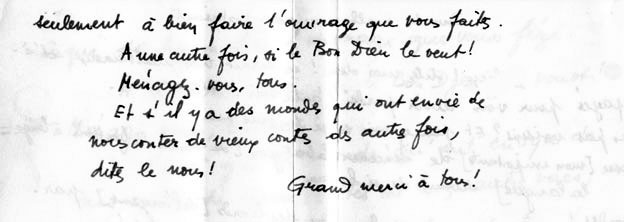 seulement à bien faire l'ouvrage que vous faites.
A une autre fois, si le Bon Dieu le veut!
Ménagez-vous, tous.
Et s'il y a des mondes qui ont envie de
nous conter de vieux contes des autre fois,
dites le nous!
Grand merci à tous!